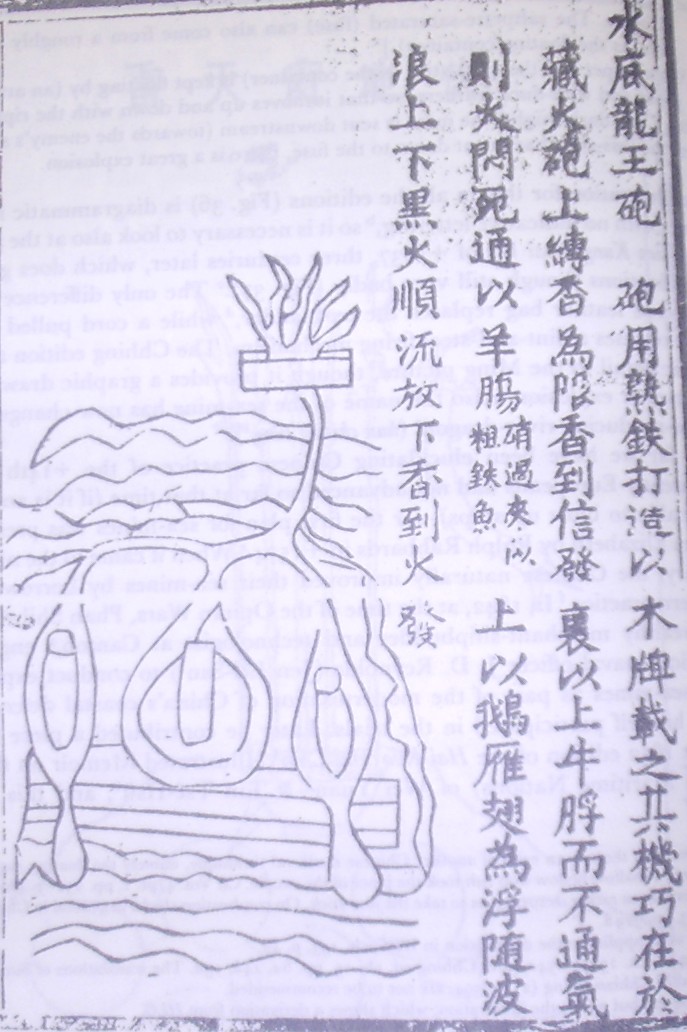 水底龍王砲　砲用熟鉄打造以木牌載之其機巧在於
藏火砲上縛香為限香到信發　裏以上牛脬而不通氣
則火悶死通以羊腸
硝過
粗鉄魚
上以鵝雁翅為浮隨波
浪上下黑火順流放下香到火發